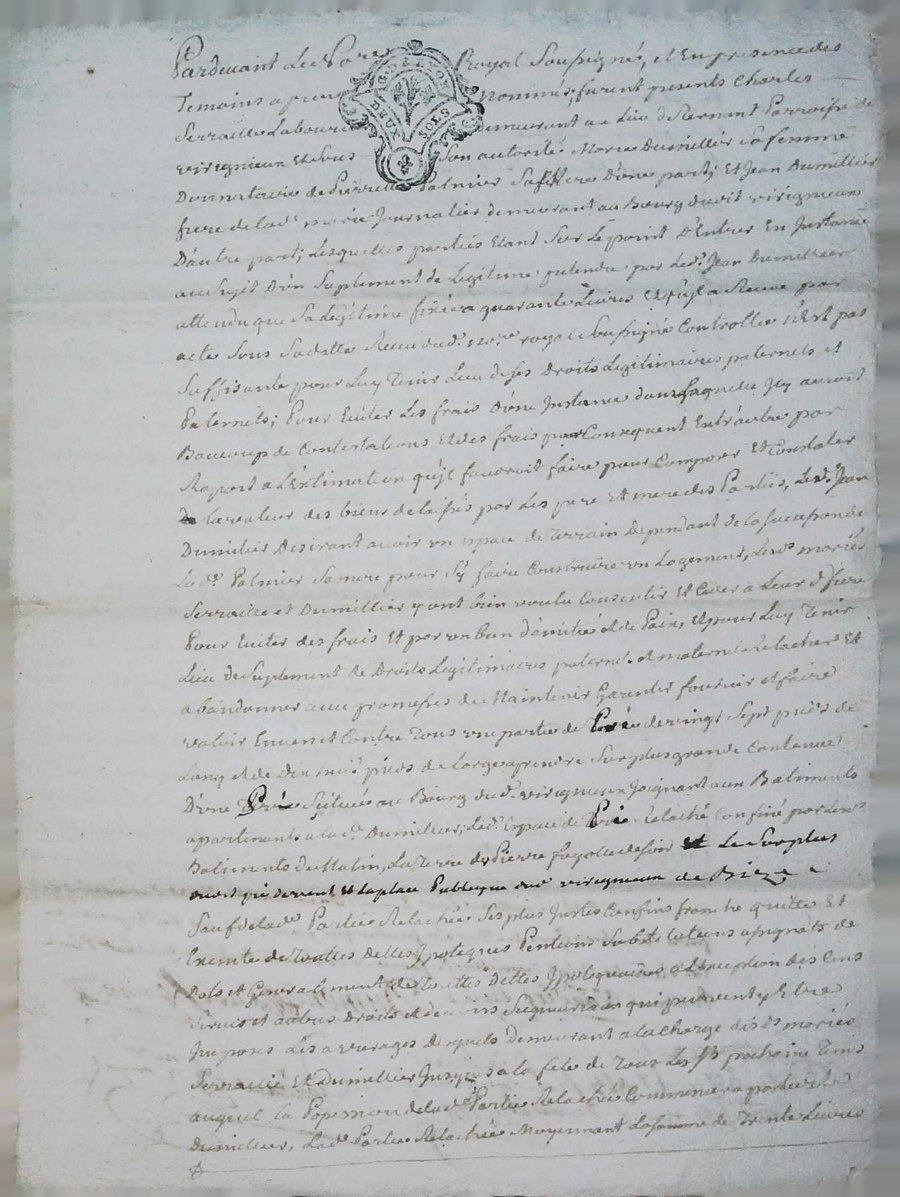 Pardevant Le No.re Royal Soussigné, et En presence des
Temoins apres Nommés, furent presents Charles
Serraille Laboureur demeurant au Lieu de Parroisse de
virigneux Et Sous Son autorité Marie Dumillier Sa femme
Donnataire de Pierrette Palmier Sa Mere D'une part; Et Jean Dumillier
frere de lad. marie Journalier demeurant au Bourg dudit virigneux
D'autre part; Lesquelles parties Etant Sur Le point D'Entrer En Instance
au Sujet D'un Suplement de Legitime pretendu par Led. Jean Dumillier
attendu que Sa Legitime fixée a quarante Livres Et qu'il a Reçue par
acte Sous Sa datte Reçu dud. No.re royal Soussigné Controllé n'Est pas
Suffisante pour Luy Tenir Lieu de ses Droits Legitimaires paternels et
Maternels; Pour Eviter Les frais D'une Instance dans Laquelle Il y auroit
Baucoup de Contestations Et des frais par Consequent Entr'autre par
Raport a L'Estimation qu'il faudroit faire pour Composer Et Constater
la valeur des biens delaissés par Les pere Et mere des Parties, Led. Jean
Dumillier Desirant avoir un espace de Terrain Dependant de la Succession de
Lad. Palmier Sa mere pour S'y faire Construire un Logement, Lesd. mariés
Serraille et Dumillier y ont bien voulu Consentir Et Ceder a Leur d. frere
Pour Eviter des frais Et par un bien d'amitié et de Paix, Et pour Luy Tenir
Lieu de Suplement de Droits Legitimaires paternels et maternels Relacher Et
abandonner avec promesses de Maintenir Garentir fournir et faire
valoir Envers et Contre Tous une partie de Pré de vingt Sept pieds de
Long et de Dix huit pieds de Large a prendre Sur plus grande Contenue
D'une Pré Scituée au Bourg dud. virigneux Joignant aux Batiments
apartenants a la d. Dumillier; Led. Espace de Pré Relaché Confiné par Lesd.
Batiments de Matin, La Terre de Pierre fayolle de Soir Et Le Surplus
dudit pré de vent Et la place Publique dud virigneux de Bize
Sauf de lad. Partie Relachée Ses plus Justes Confins franche quitte Et
Exemte de Toutes Dettes Ipoteques Pentions Substitutions assignats de
Dots et Generallement de Toutes Dettes Ipotequaires a L'Exception des Cens
Servis et autres Droits et devoirs Seigneuriaux qui peuvent y Etre
Imposés Les arrerages desquels demeurant a la charge desd. mariés
Serraille Et Dumillier Jusques a la fete de Tous Les Sts prochaine Tems
auquel La Possession de lad. Partie Relachée Commencera par Led.
Dumillier, Lad. Partie Relachée Moyennant La Somme de Trente Livres
G. D. LYON
DEUX SOLS